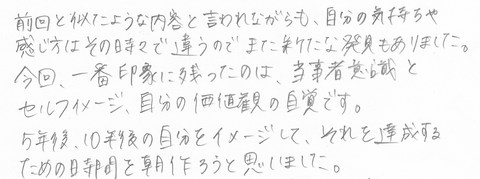 前回と似たような内容と言われながらも、自分の気持ちや
感じ方はその日時々で違うのでまた新たな発見もありました。
今回、一番印象に残ったのは、当事者意識と
セルフイメージ、自分の価値観の自覚です。
5年後、10年後の自分をイメージして、それを達成する
ための時間を朝作ろうと思いました。